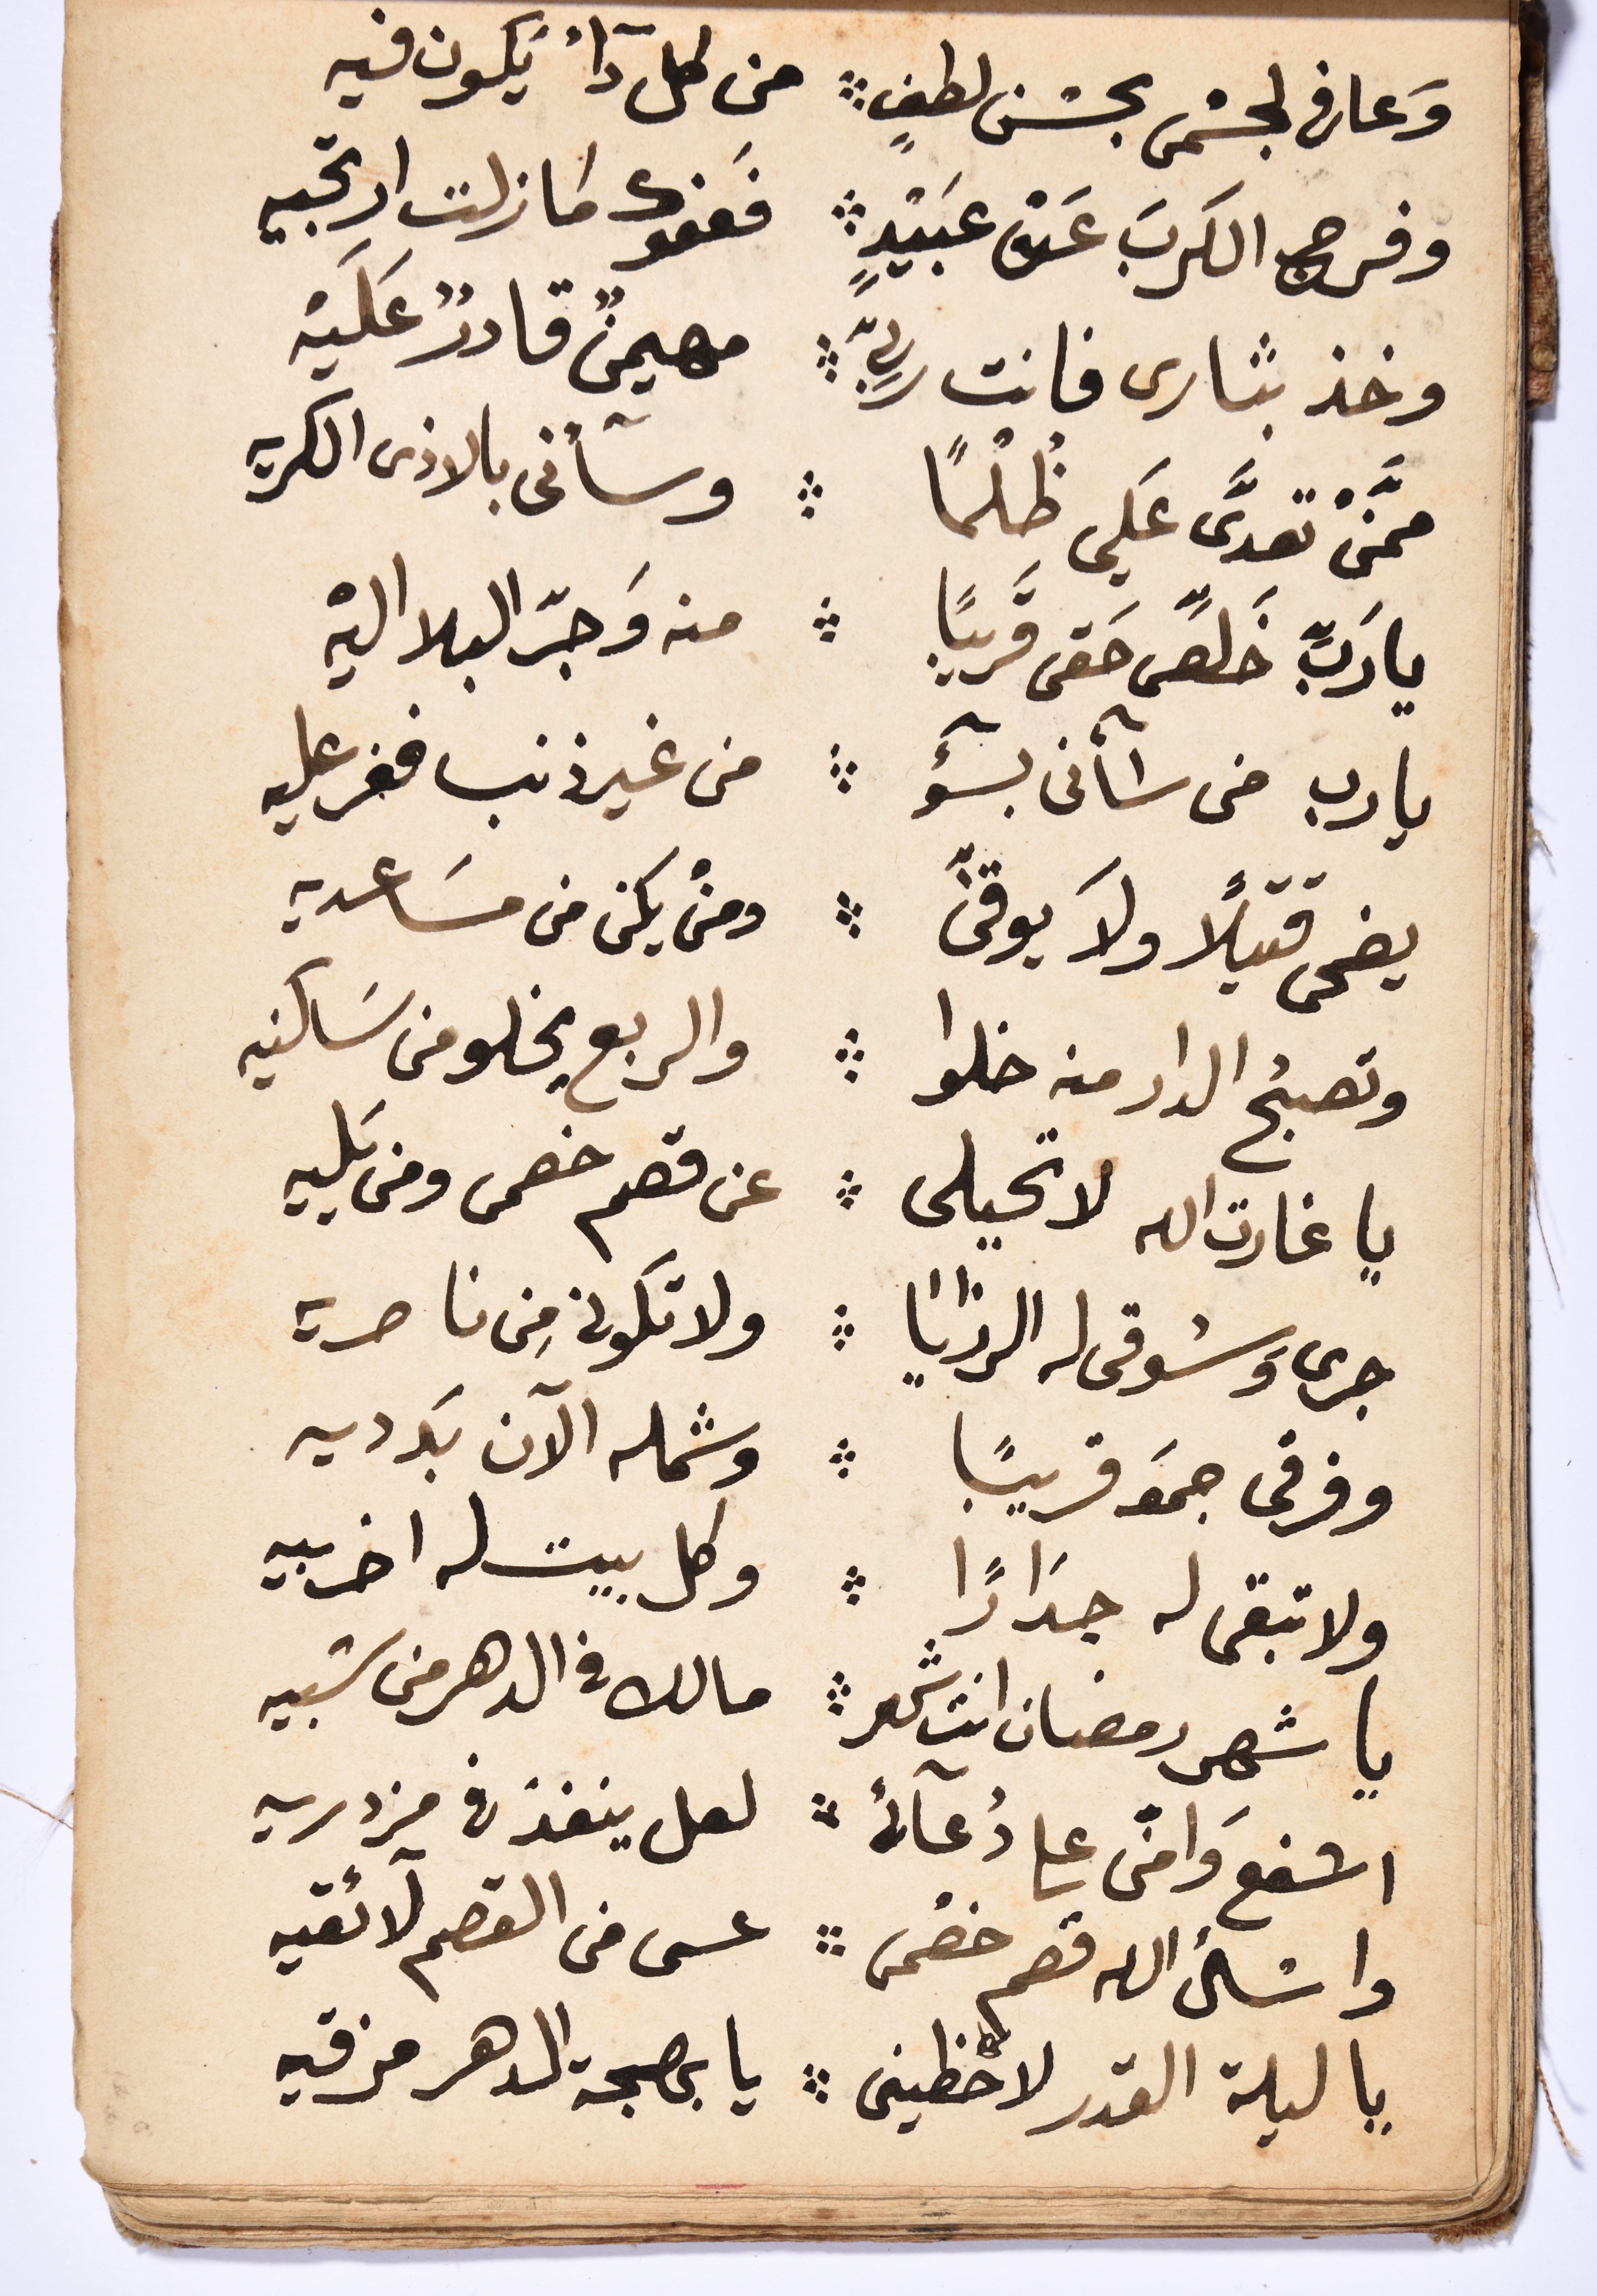 وَعافى لجسْمى بحسْن لطفٍ ⁘ من كل دآءٍ يَكون فيه
وفرج الكَربَ عَنْ عبَيْدٍ ⁘ فَعفوك مَا زلت ارتجيه
وخذ بثارى فانت ربِّى ⁘ مهيمنٌ قادرٌ عَلَيْه
ممَّنْ تعدَّى عَلى ظُلْمًا ⁘ وسآأنى بالاذى الكريه
يا رَبِّ خَلصّ حَقى قَريبًا ⁘ منه وَجرّ البلا اليْه
يا رب من سآأنى بسؤٓ ⁘ من غير ذنب فغر عليه
يضحى قتيلًا ولَا يوقىّ ⁘ ومنْ يكن من مسَاعديه
وتصبحُ الدار منه خلوا ⁘ والربع يخلو من سَاكنيه
يا غارت الله لا تحيلى ⁘ عن قصم خصمى ومن يَليه
جرى وَسُوقى له الرزايَا ⁘ ولا تكونى مِن ناصريه
وفرقى جمعَه قريبًا ⁘ وشمله الآن بَدديه
ولا تبقى له جدَارًا ⁘ وكل بيت له اخربيه
يا شهر رمضان انت شهر ⁘ مالك فى الدهر من شبيه
اشفع وَامّن على دُعآئى ⁘ لعل ينفذ فى مزدريه
واسَئل الله قصم خصْمى ⁘ عسى من القصم لآئقيه
يا ليلة القدر لاحظينى ⁘ يا بهجة الدهر مزقيه